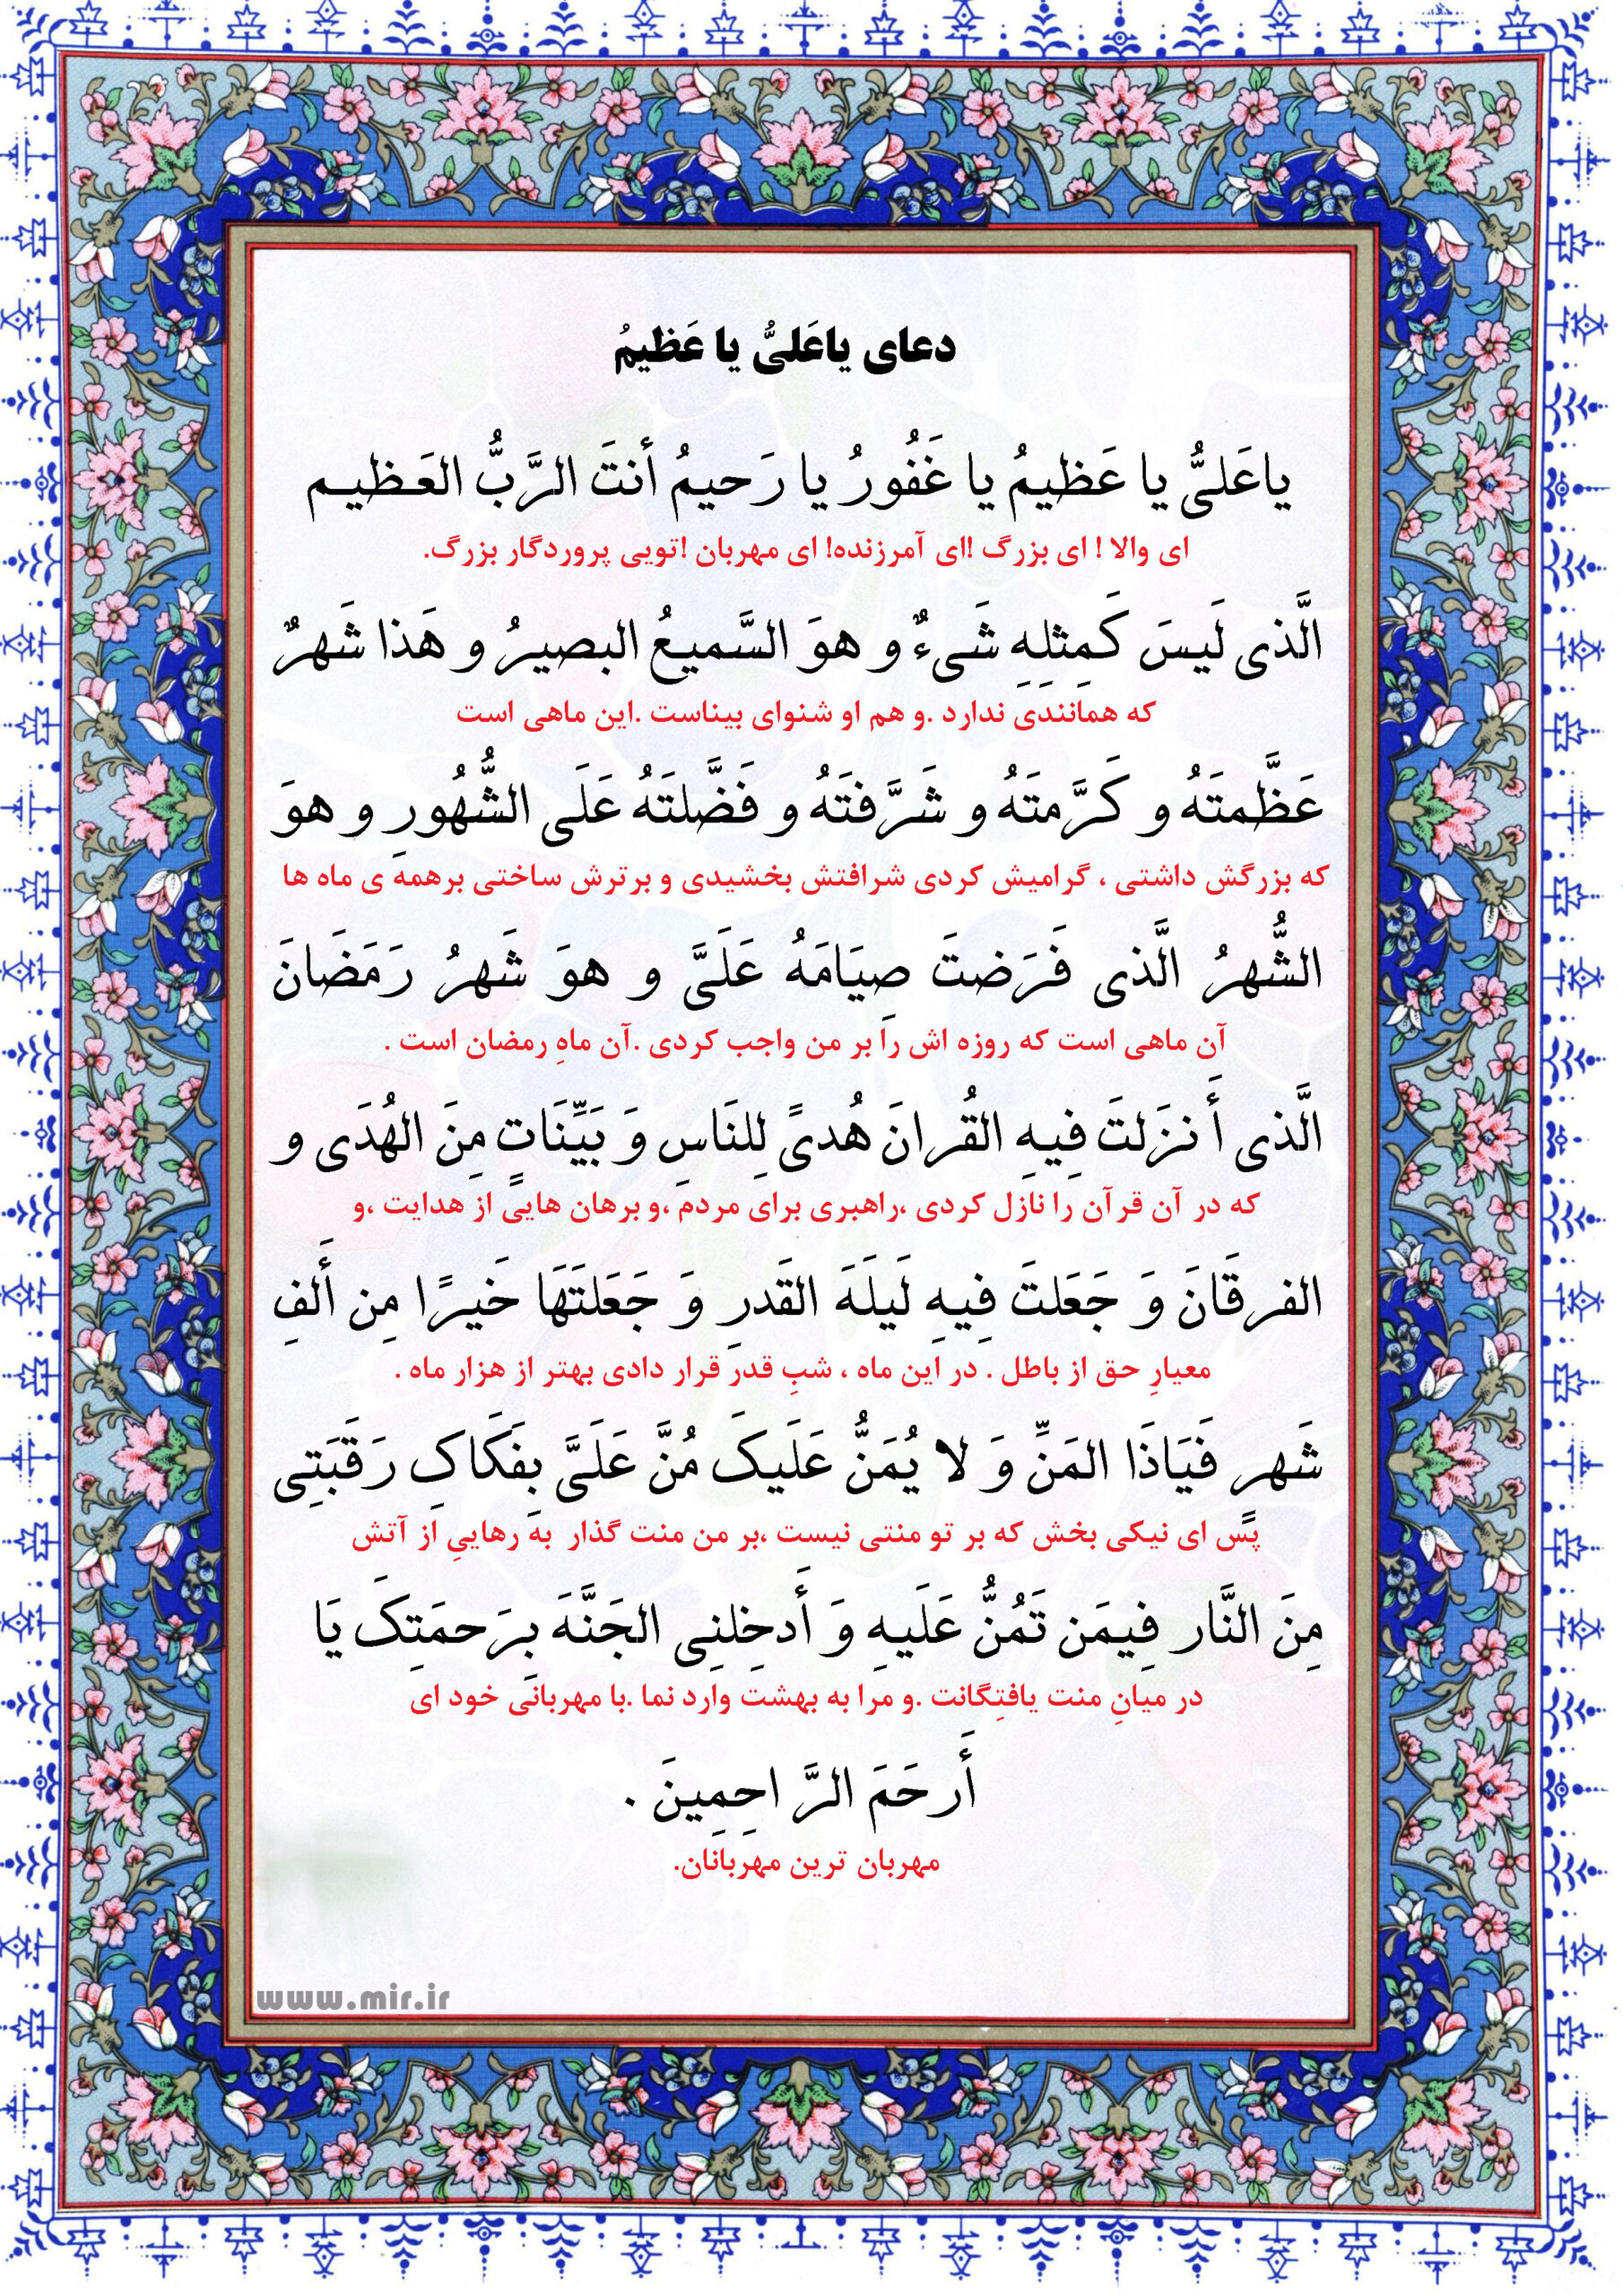 دعای یاعَلیُّ یا عَظیمُ
یاعَلیُّ یا عَظیمُ یا غَفُورُ یا رَحیمُ أنتَ الرَّبُّ العَظیم
ای والا ! ای بزرگ !ای آمرزنده! ای مهربان !تویی پروردگار بزرگ.
الَّذی لَیسَ کَمِثلِهِ شَیءٌ و هوَ السَّمیعُ البصیرُ و هَذا شَهرٌ
که همانندی ندارد .و هم او شنوای بیناست .این ماهی است
عَظَّمتَهُ و کَرَّمتَهُ و شَرَّفتَهُ و فَضَّلتَهُ عَلَی الشُّهُورِ و هوَ
که بزرگش داشتی ، گرامیش کردی شرافتش بخشیدی و برترش ساختی برهمه ی ماه ها
الشُّهرُ الَّذی فَرَضتَ صِیَامَهُ عَلَیَّ و هوَ شَهرُ رَمَضَانَ
آن ماهی است که روزه اش را بر من واجب کردی .آن ماهِ رمضان است .
الَّذی أَنزَلتَ فِیهِ القُرانَ هُدیً لِلنَاسِ وَ بَیِّنَاتٍ مِنَ الهُدَی و
که در آن قرآن را نازل کردی ،راهبری برای مردم ،و برهان هایی از هدایت ،و
الفرقَانَ وَ جَعَلتَ فِیهِ لَیلَهَ القَدرِ وَ جَعَلتَهَا خَیرًا مِن أَلفِ
معیارِ حق از باطل . در این ماه ، شبِ قدر قرار دادی بهتر از هزار ماه .
شَهرٍ فَیَاذَا المَنِّ وَ لا یُمَنُّ عَلَیکَ مُنَّ عَلَیَّ بِفَکَاکِ رَقَبَتِی
پس ای نیکی بخش که بر تو منتی نیست ،بر من منت گذار به رهاییِ از آتش
مِنَ النَّار فِیمَن تَمُنُّ عَلَیهِ وَ أَدخِلنِی الجَنَّهَ بِرَحمَتِکَ یَا
در میانِ منت یافتِگانت .و مرا به بهشت وارد نما .با مهربانی خود ای
أَرحَمَ الرَّ احِمِینَ .
مهربان ترین مهربانان.
www.mir.ir